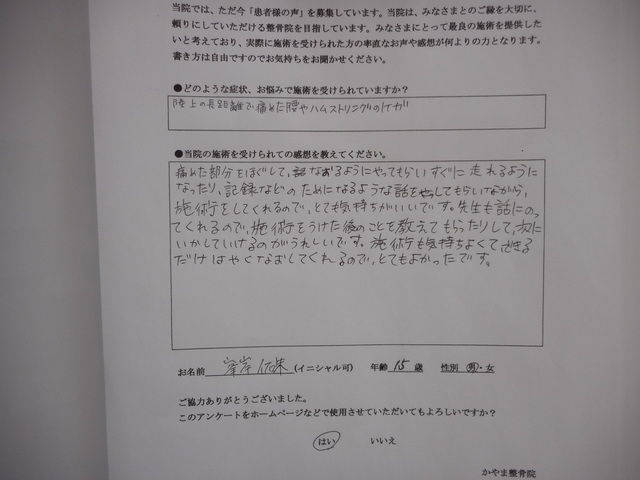 当院では、ただ今「患者様の声」を募集しています。当院は、みなさまとのご縁を大切に、
頼りにしていただける整骨院を目指しています。みなさまにとって最良の施術を提供した
いと考えており、実際に施術を受けられた方の率直なお声や感想が何よりの力となります。
書き方は自由ですのでお気持ちをお聞かせください。
●どのような症状、お悩みで施術を受けられていますか?
陸上の長距離で痛めた腰やハムストリングのケガ
●当院の施術を受けられての感想を教えてください。
痛めた部分をほぐして、なおるようにやってもらいすぐに走れるように
なったり、記録などのためになるような話をしてもらいながら、
施術をしてくれるので、とても気持ちがいいです。先生も話にのっ
てくれるので、施術をうけた後のことを教えてもらったりして、次に
いかしていけるのがうれしいです。施術も気持ちよくて、できる
だけはやくなおしてくれるので、とてもよかったです。
お名前 (イニシャル可) 年齢 15 歳 性別 男・女
ご協力ありがとうございました。
このアンケートをホームページなどで使用させていただいてもよろしいですか?
はい いいえ
かやま整骨院